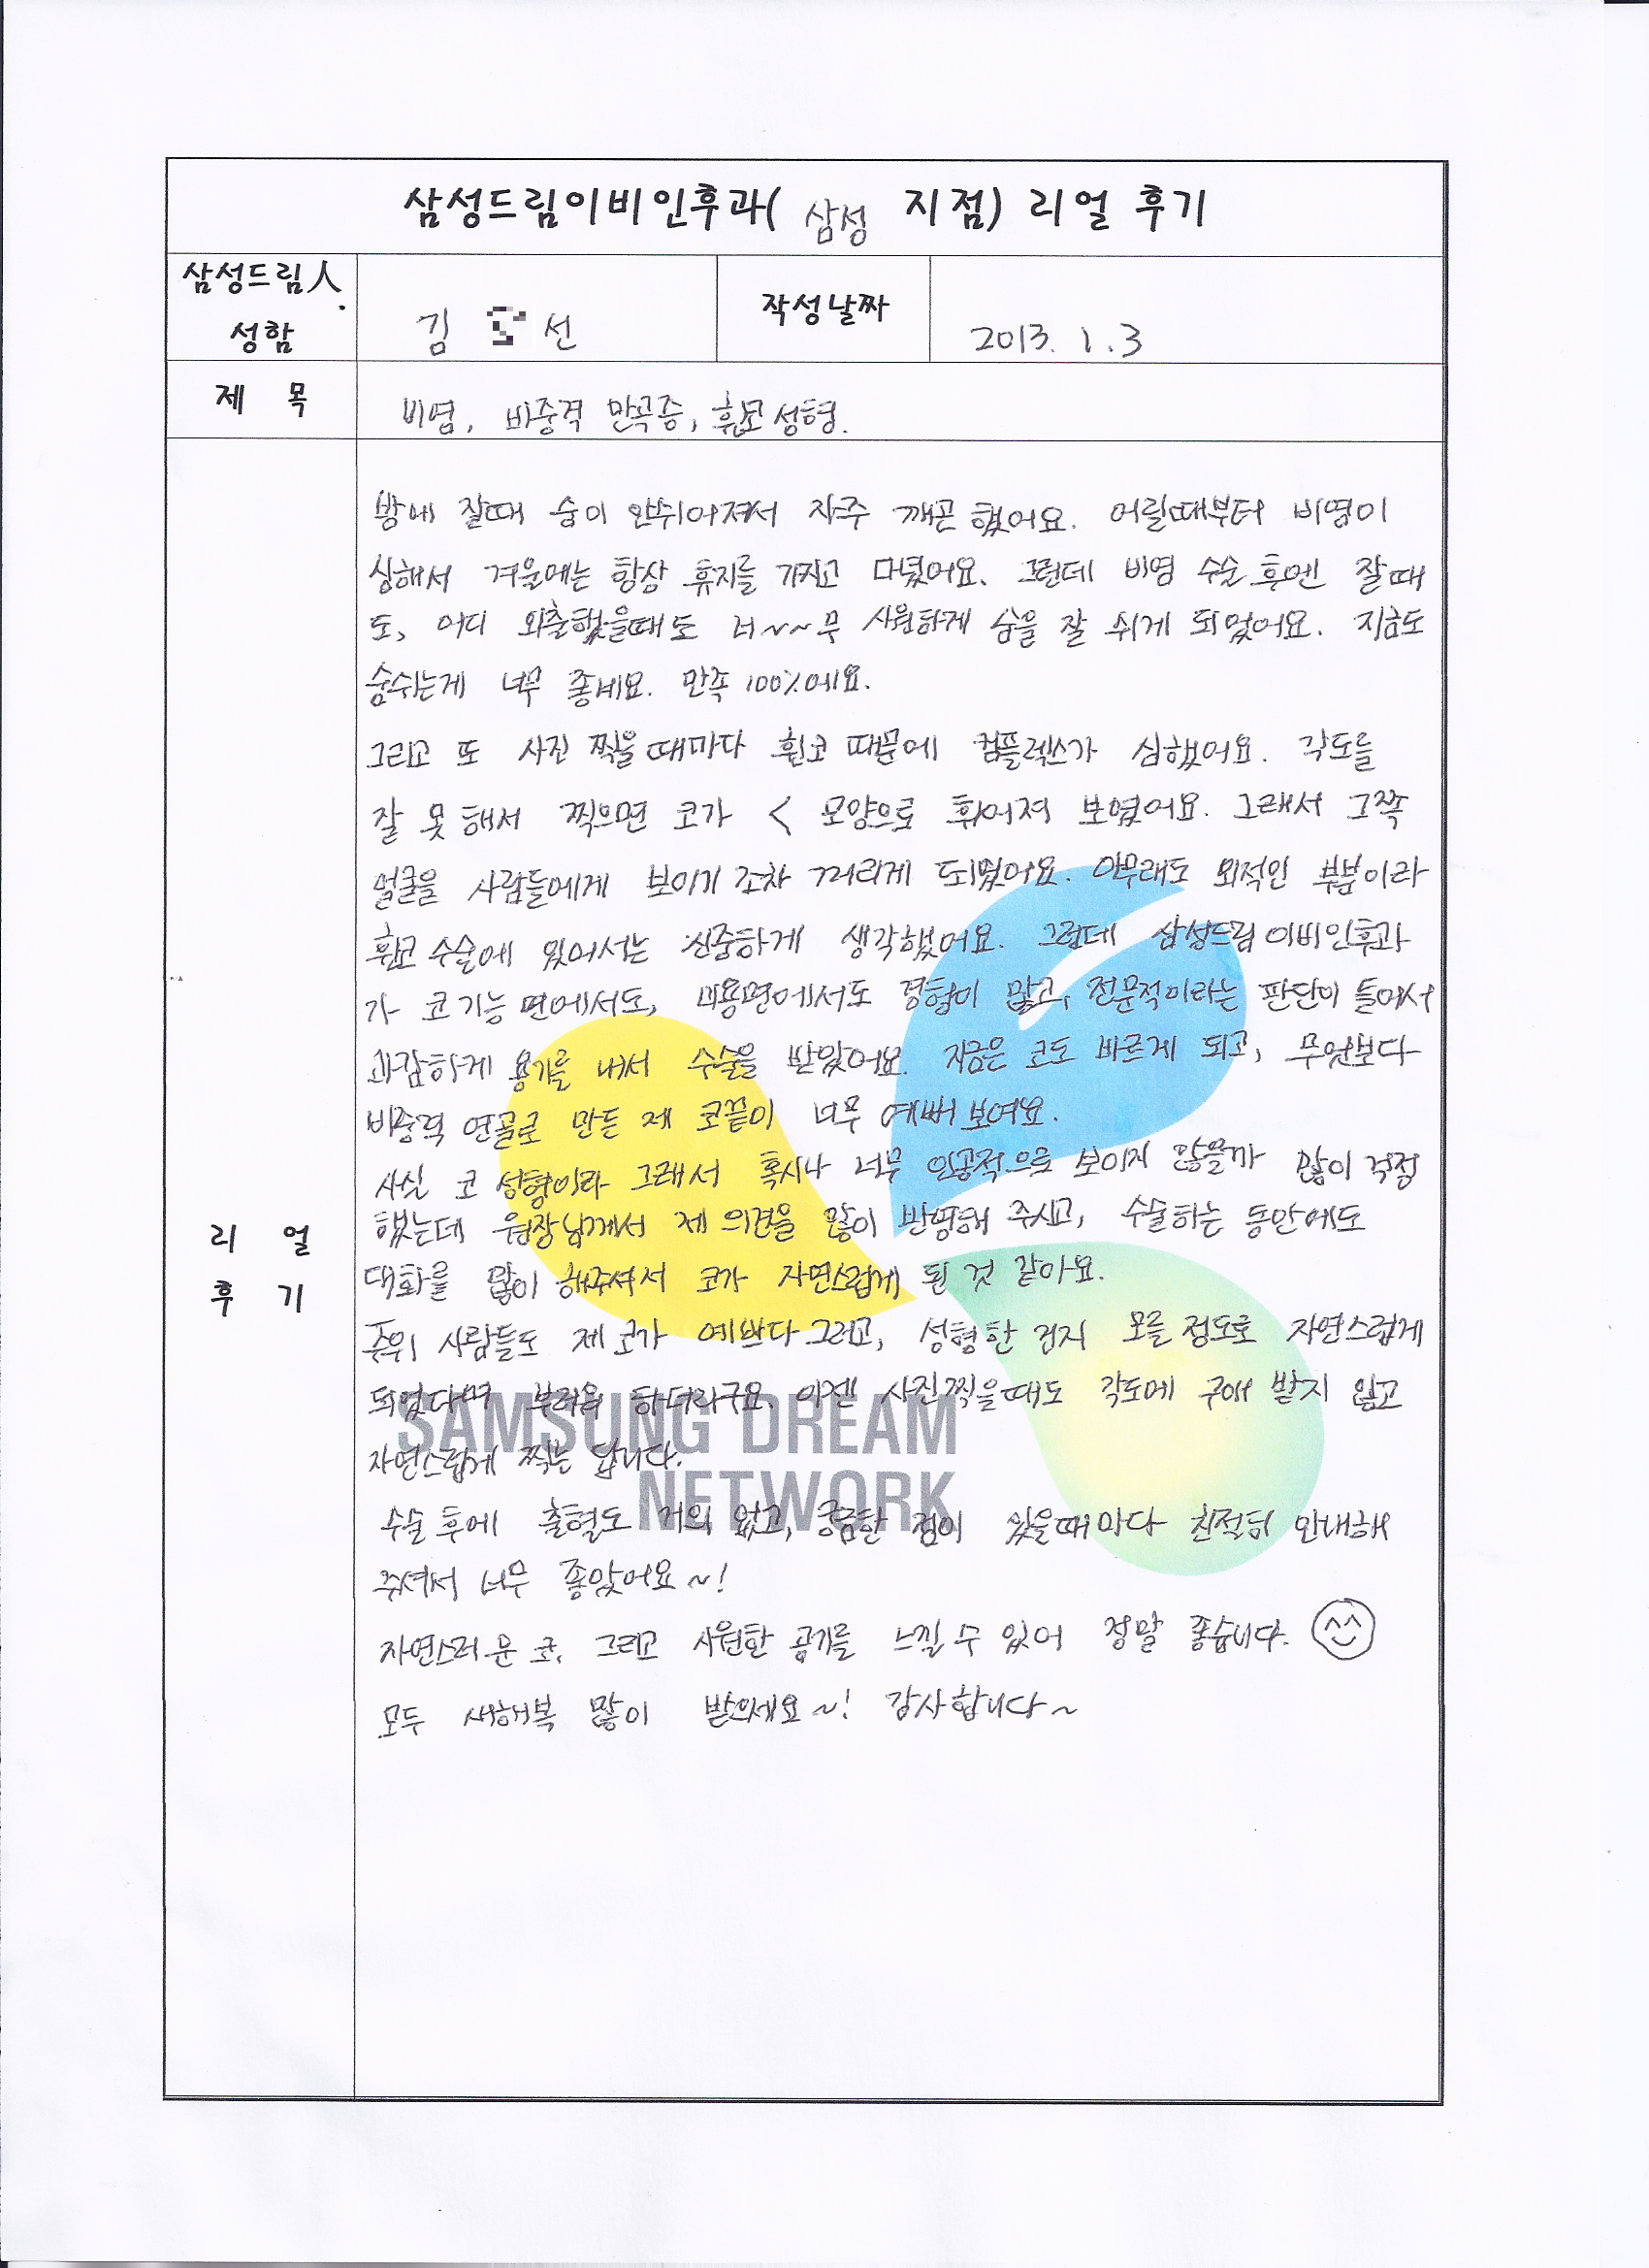 삼성드림이비인후과( 삼성 지점) 리얼 후기
삼성드림人
성함
김 선
작성날짜
2013. 1. 3
제 목
비염, 비중격 만곡증, 휜코 성형.
밤에 잘때 숨이 안쉬어져서 자주 깨곤 했어요. 어릴때부터 비염이
심해서 겨울에는 항상 휴지를 가지고 다녔어요. 그런데 비염 수술 후엔 잘때
도, 어디 외출했을때도 너~~무 시원하게 숨을 잘 쉬게 되었어요. 지금도
숨쉬는게 너무 좋네요. 만족 100%에요.
그리고 또 사진 찍을때마다 휜코 때문에 컴플렉스가 심했어요. 각도를
잘 못 해서 찍으면 코가 < 모양으로 휘어져 보였어요. 그래서 그쪽
얼굴을 사람들에게 보이기 조차 꺼리게 되었어요. 아무래도 외적인 부분이라
휜코 수술에 있어서는 신중하게 생각했어요. 그런데 삼성드림이비인후과
가 코 기능 면에서도, 미용면에서도 경험이 많고, 전문적이라는 판단이 들어서
과감하게 용기를 내서 수술을 받았어요. 지금은 코도 바르게 되고, 무엇보다
비중격 연골로 만든 제 코끝이 너무 예뻐 보여요.
사실 코 성형이라 그래서 혹시나 너무 인공적으로 보이지 않을까 많이 걱정
했는데 원장님께서 제 의견을 많이 반영해 주시고, 수술하는 동안에도
대화를 많이 해주셔서 코가 자연스럽게 된 것 같아요.
주위 사람들도 제 코가 예쁘다 그러고, 성형한 건지 모를 정도로 자연스럽게
되었다며 부러워 하더라구요. 이젠 사진찍을때도 각도에 구애 받지 않고
자연스럽게 찍는 답니다.
수술 후에 출혈도 거의 없고, 궁금한 점이 있을때마다 친절히 안내해
주셔서 너무 좋았어요~!
자연스러운 코, 그리고 시원한 공기를 느낄 수 있어 정말 좋습니다.
모두 새해복 많이 받으세요~! 감사합니다~
리 얼
후 기
SAMSUNG DREAM
NETWORK